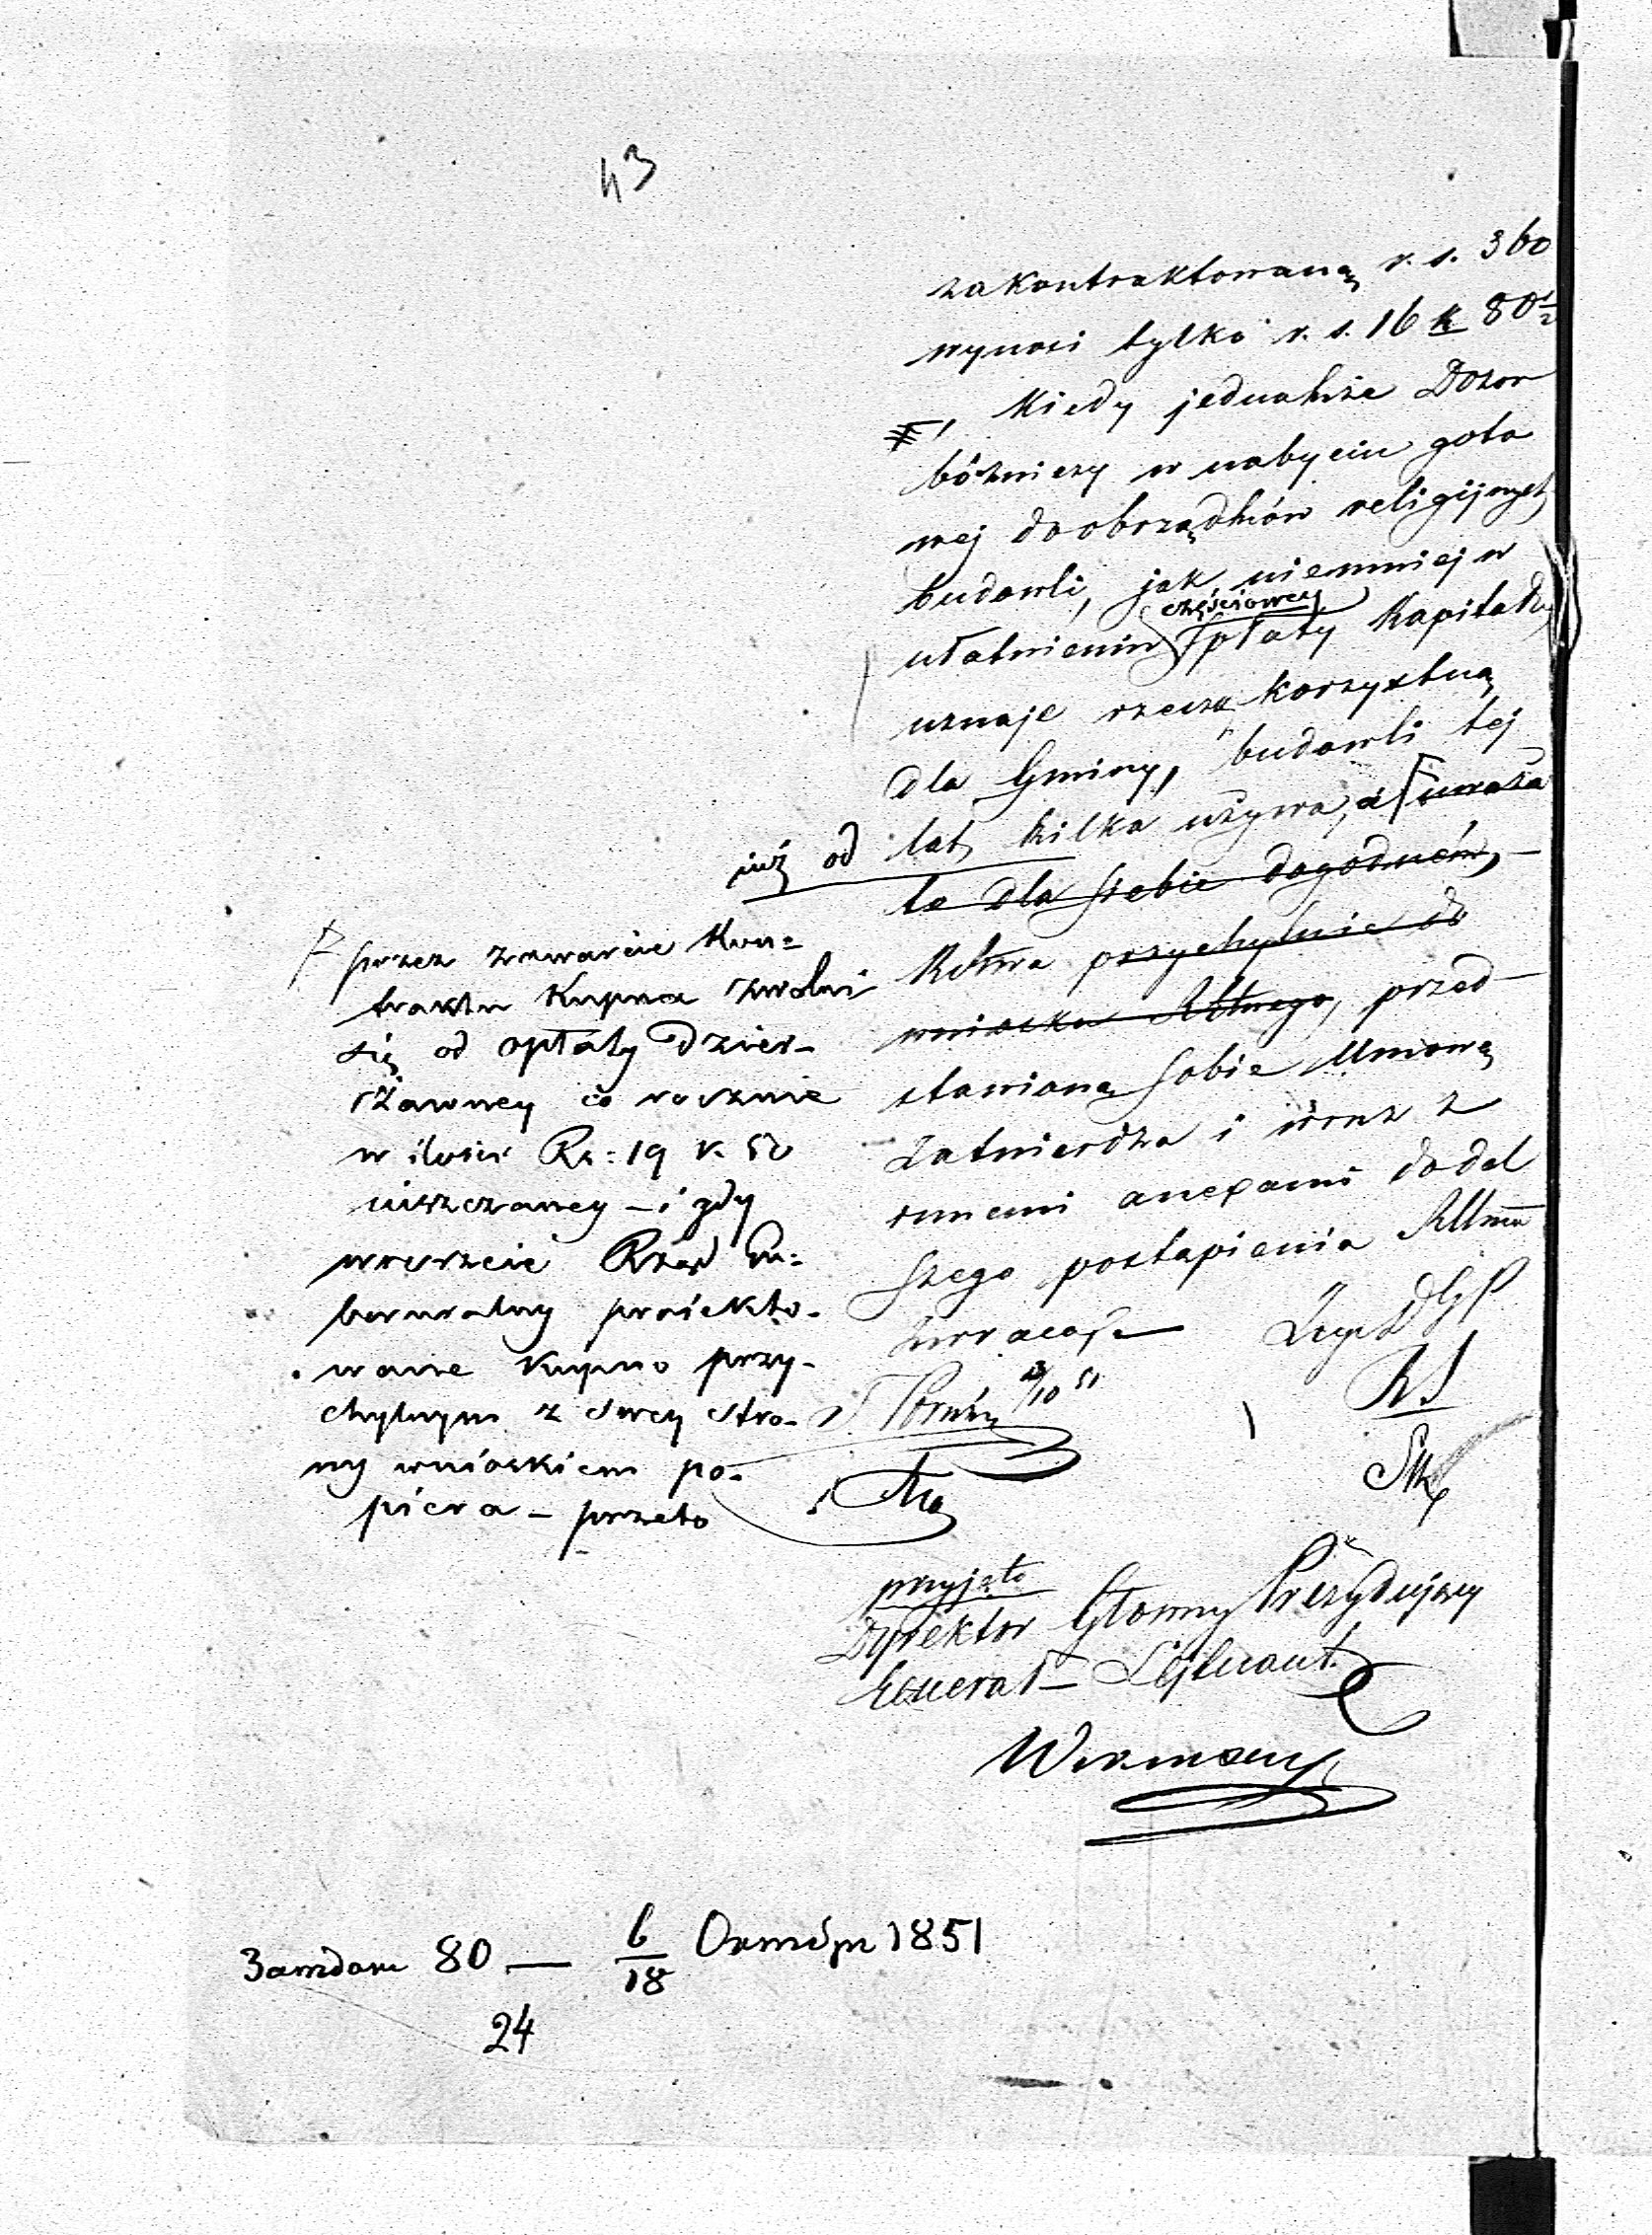 43
zakontraktowaną r. s. 360
wynosi tylko r. s. 16 k 80½
, Kiedy jednakże Dozor
bóżniczy w nabyciu goto
wej do obrządków religijnych
budowli, jak niemniej w
częściowey
ułatwieniu spłaty Kapitału
uznaje rzeczą korzystną
dla Gminy, budowli tej
już od lat kilka używa, a uważa
to dla siebie dogodném,
przychylnie do
wniosku, przed
stawioną sobie Umowę
zatwierdza i wraz z
innemi anexami do dal
szego postąpienia
zwraca
przez zawarcie Kon=
traktu Kupna zwolni
się od opłaty Dzier-
żawney co rocznie
w ilości Rs: 19 k. 50
uiszczaney - i gdy
wreszcie Rząd Gu=
bernialny proiekto-
wane Kupno przy-
chylnym z swey stro-
ny wnioskiem po-
piera - przeto
przyjęto
Dyrektor Głowny Prezydujący
Generał - Lejtnant
80 — 6/18 1851
24